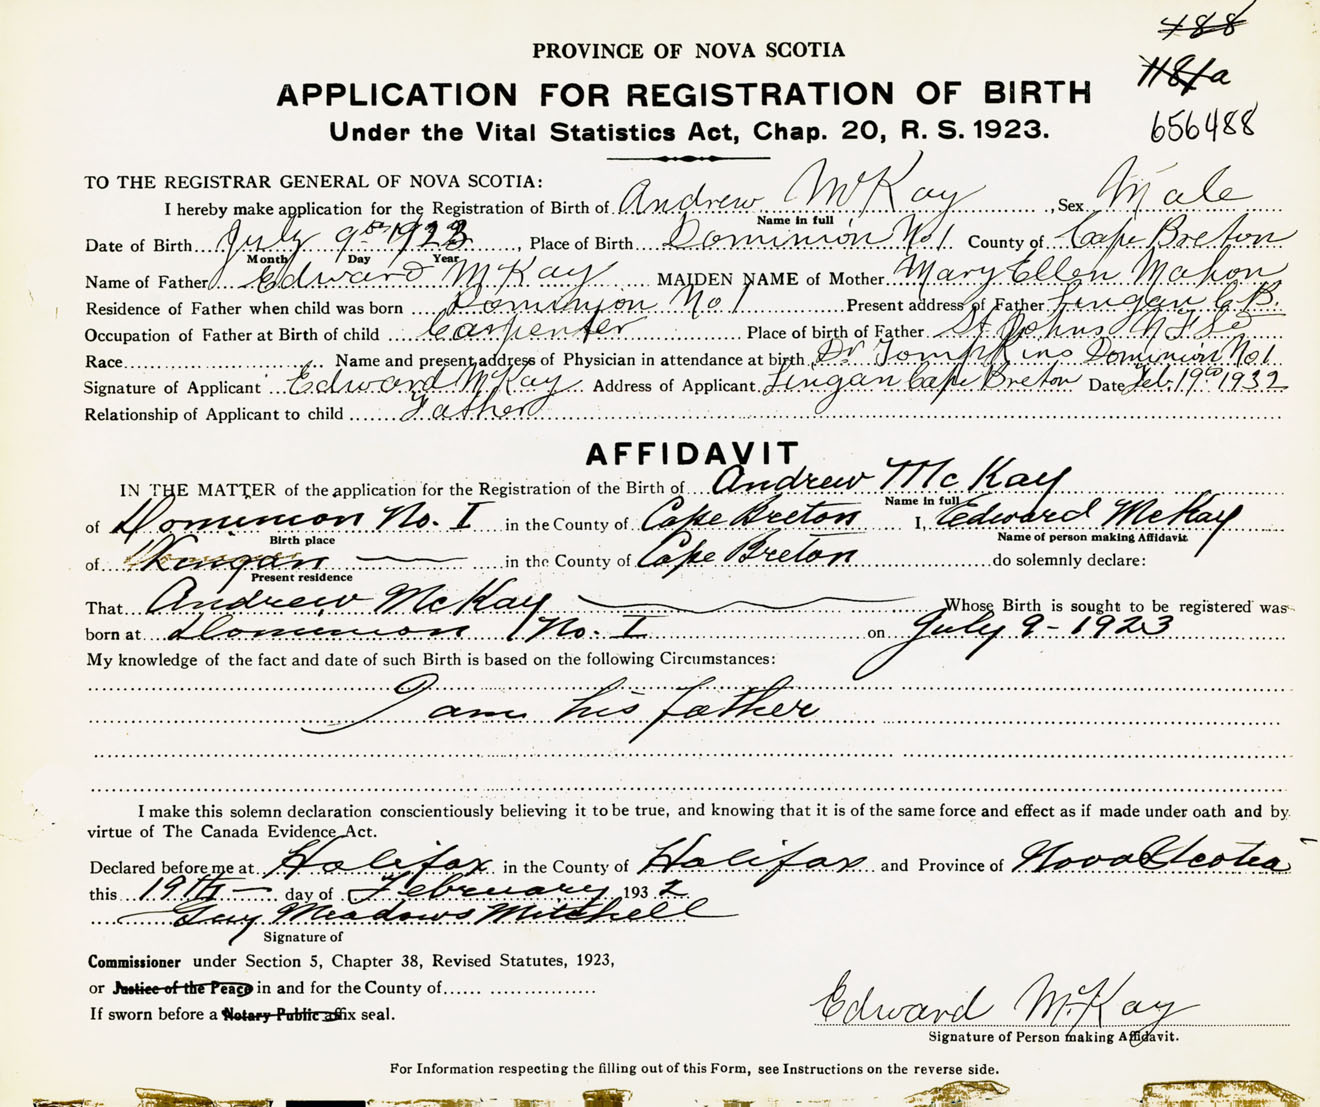 488
1181a
656488
PROVINCE OF NOVA SCOTIA
APPLICATION FOR REGISTRATION OF BIRTH
Under the Vital Statistics Act, Chap. 20, R. S. 1923.
TO THE REGISTRAR GENERAL OF NOVA SCOTIA:
I hereby make application for the Registration of Birth of Andrew McKay, Sex Male
Name in full
Date of Birth July 9th 1923, Place of Birth Dominion No 1 County of Cape Breton
Month Day Year
Name of Father Edward McKay MAIDEN NAME of Mother Mary Ellen Mahon
Residence of Father when child was born Dominion No 1 Present address of Father Lingan C. B.
Occupation of Father at Birth of child Carpenter Place of birth of Father St Johns Nfld
Race Name and present address of Physician in attendance at birth Dr Tompkins Dominion No 1.
Signature of Applicant Edward McKay Address of Applicant Lingan Cape Breton Date Feb. 19th 1932
Relationship of Applicant to child Father
AFFIDAVIT
IN THE MATTER of the application for the Registration of the Birth of Andrew McKay
Name in full
of Dominion No. I in the County of Cape Breton I, Edward McKay
Birth place Name of person making Affidavit
of Lingan in the County of Cape Breton do solemnly declare:
Present residence
That Andrew McKay Whose Birth is sought to be registered was
born at Dominion No. I on July 9-1923
My knowledge of the fact and date of such Birth is based on the following Circumstances:
I am his father
I make this solemn declaration conscientiously believing it to be true, and knowing that it is of the same force and effect as if made under oath and by
virtue of The Canada Evidence Act.
Declared before me at Halifax in the County of Halifax and Province of Nova Scotia
this 19th day of February 1932
Guy Meadows Mitchell
Signature of
Commissioner under Section 5, Chapter 38, Revised Statutes, 1923,
or Justice of the Peace in and for the County of
If sworn before a Notary Public affix seal.
Edward McKay
Signature of Person making Affidavit.
For Information respecting the filling out of this Form, see Instructions on the reverse side.